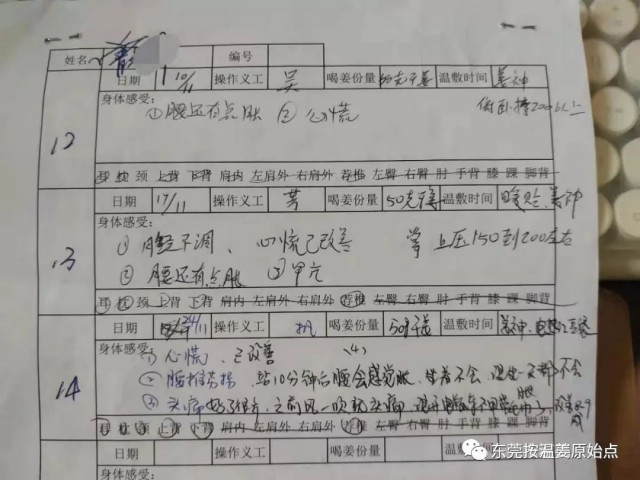 姓名 编号
日期 10/11 操作义工 吴 喝姜份量 50克干姜 温敷时间 姜神
身体感受: ①腰还有点胀 ②心慌 俯卧撑200以上
12
印 枕 颈 上背 下背 肩内 左肩外 右肩外 荐椎 左臀 右臀 肘 手背 膝 踝 脚背
日期 17/11 操作义工 喝姜份量 50克干姜 温敷时间 姜神
身体感受:
13
① 不调、心慌已改善 上压150到200左右
② 腰还有点胀 ③甲亢
印 枕 颈 上背 下背 肩内 左肩外 右肩外 荐椎 左臀 右臀 肘 手背 膝 踝 脚背
日期 24/11 操作义工 喝姜份量 50克干姜 温敷时间 姜神、
身体感受: ① 心慌、已改善 (4)
14
② 腰椎劳损、站10分钟右腰会感觉胀、坐着不会、 不会
③ 头痛好了很多、之前风一吹就头痛、现在
印 枕 颈 上背 下背 肩内 左肩外 右肩外 荐椎 左臀 右臀 肘 手背 膝 踝 脚背
日期 操作义工 喝姜份量 温敷时间
身体感受:
东莞按温姜原始点